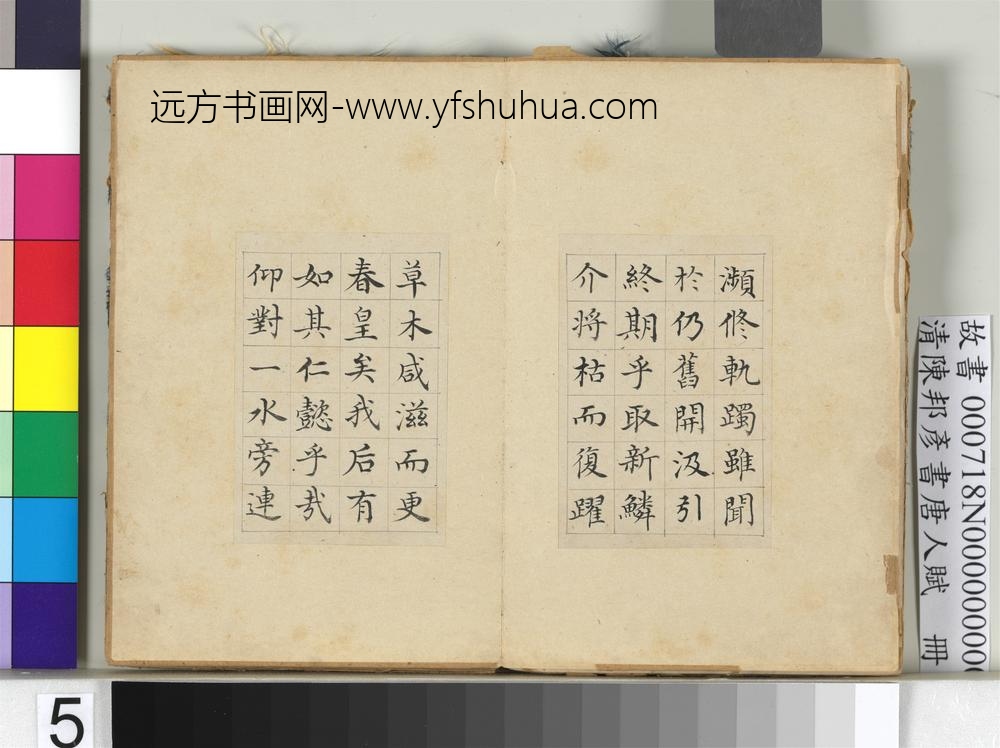 远方书画网-www.yfshuhua.com
瀕修軌躅雖聞
於仍舊開汲引
終期乎取新鱗
介將枯而復躍
草木咸滋而更
春皇矣我后有
如其仁懿乎哉
仰對一水旁連
故書 000718N00000000
清陳邦彥書唐人賦 冊
5